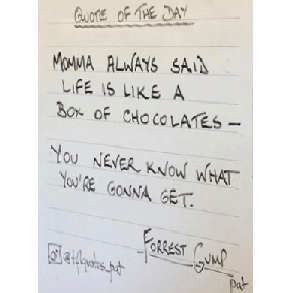 QUOTE OF THE DAY
MOMMA ALWAYS SAID
LIFE IS LIKE A
BOX OF CHOCOLATES —
YOU NEVER KNOW WHAT
YOU'RE GONNA GET.
FORREST GUMP
pat